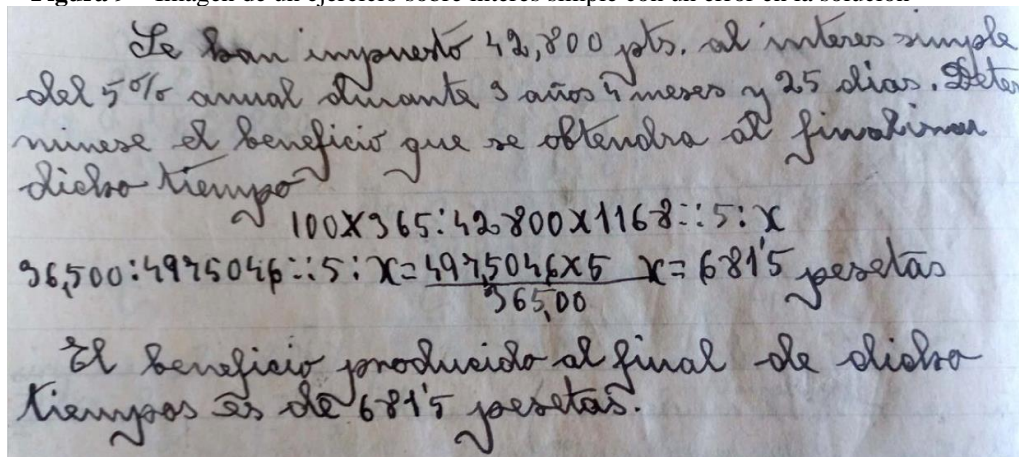 Figura 9 – Imagen de un ejercicio sobre interés simple con un error en la solución
Se han impuesto 42,800 pts. al interes simple
del 5% anual durante 3 años 4 meses y 25 dias. Deter
minese el beneficio que se obtendra al finalizar
dicho tiempo
100X365:42.800X1168::5:X
36,500:4975046::5:X=497,5046X5 X=681'5 pesetas
365,00
El beneficio producido al final de dicho
tiempos es de 681'5 pesetas.